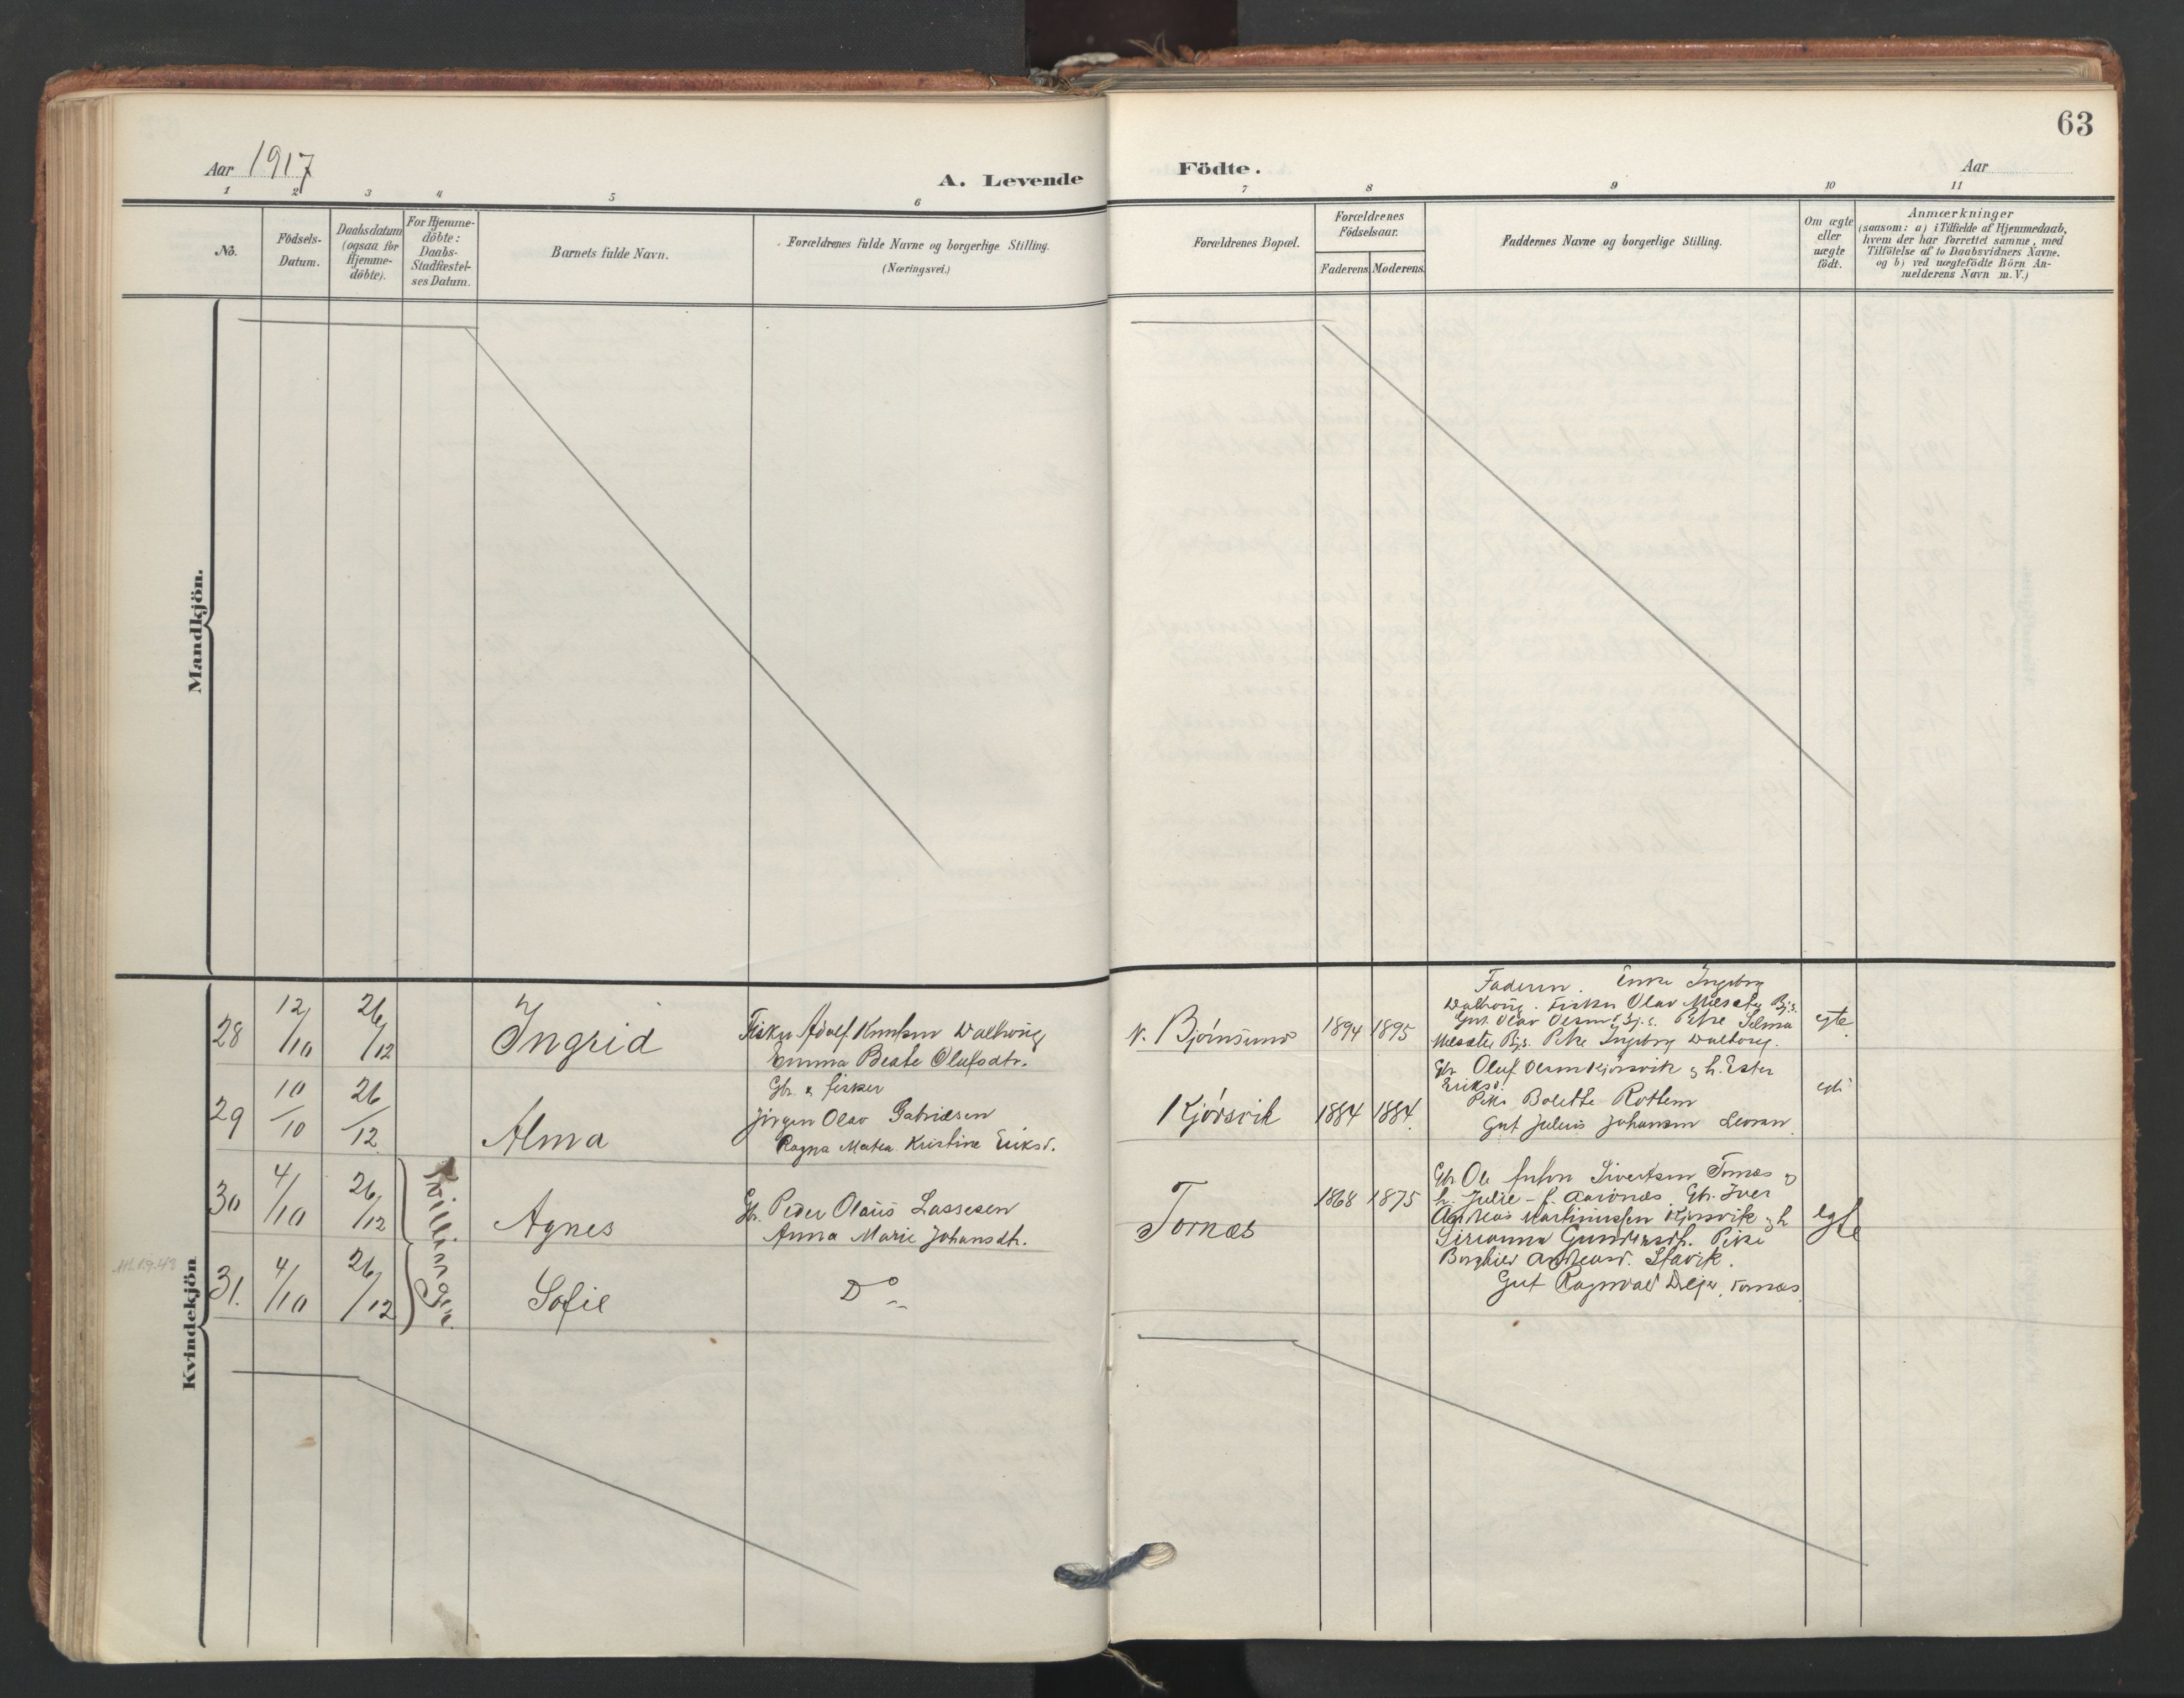 63
Aar 1917
A. Levende Födte.
Aar
1 2 3 4 5 6 7 8 9 10 11
No.
Födsels-
Datum.
Daabsdatum
(ogsaa for
Hjemme-
döbte).
For Hjemme-
döbte:
Daabs-
Stadfæstel-
ses Datum.
Barnets fulde Navn.
Forældrenes fulde Navne og borgerlige Stilling.
(Næringsvei.)
Forældrenes Bopæl.
Forældrenes
Födselsaar.
Faderens. Moderens.
Faddernes Navne og borgerlige Stilling.
Om ægte
eller
uægte
födt.
Anmærkninger
(saasom: a) i Tilfælde af Hjemmedaab,
hvem der har forrettet samme, med
Tilföielse af to Daabsvidners Navne,
og b) ved uægtefödte Börn An-
melderens Navn m. V.)
Mandkjön.
Kvindekjön
28 12/10 26/12 Ingrid
Fisker Adolf Knutsen
Emma Beate Olufsdtr.
N. Bjørnsund 1894 1895
Faderen. Enke Ingeborg
Fisker Olav
Gut. Olav Olsen Bj.s. Pike Selma
Bj.s. Pike Ingeborg
egte
29 10/10 26/12 Alma
Gbr. & fisker
Jørgen Olav Gabrielsen
Ragna Matea Kristine Eriksd.
Kjørsvik 1884 1884
Gbr. Oluf Olsen Kjørsvik & h. Ester
Eriksd.
Pike Bolette Rottem
Gut Julius Johansen
30 4/10 26/12 Agnes
Tvillinger.
Gbr. Peder Olaus Lassesen
Anna Marie Johansdtr.
Tornæs 1868 1875
Gbr. Ole Anton Sivertsen Tornæs &
h. Julie Gbr. Iver
Andreas Martinussen Kjørsvik & h
Pike
Borghild Andreasd. Stavik.
Gut Ragnvald Tornæs
egte
31. 4/10 26/12 Sofie
Do